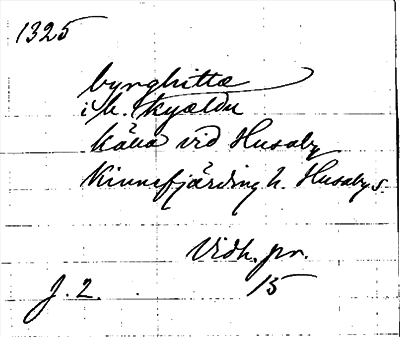 1325
byrghittæ
i h. kyældu
källa vid Husaby
Kinnefjärding h. Husaby s.
Vidh. pr.
J. 2. 15